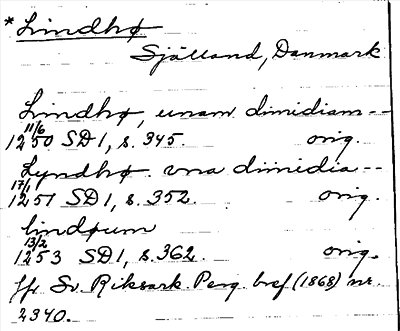 *Lindhø
Sjælland, Danmark
Lindhø, unam dimidiam --
11/6
1250 SD 1, s. 345. orig.
Lyndhø. vna dimidia --
17/1
1251 SD 1, s. 352. orig.
lindøum
13/2
1253 SD 1, s. 362. orig.
jfr Sv. Riksark. Perg. bref (1868) nr.
2340.